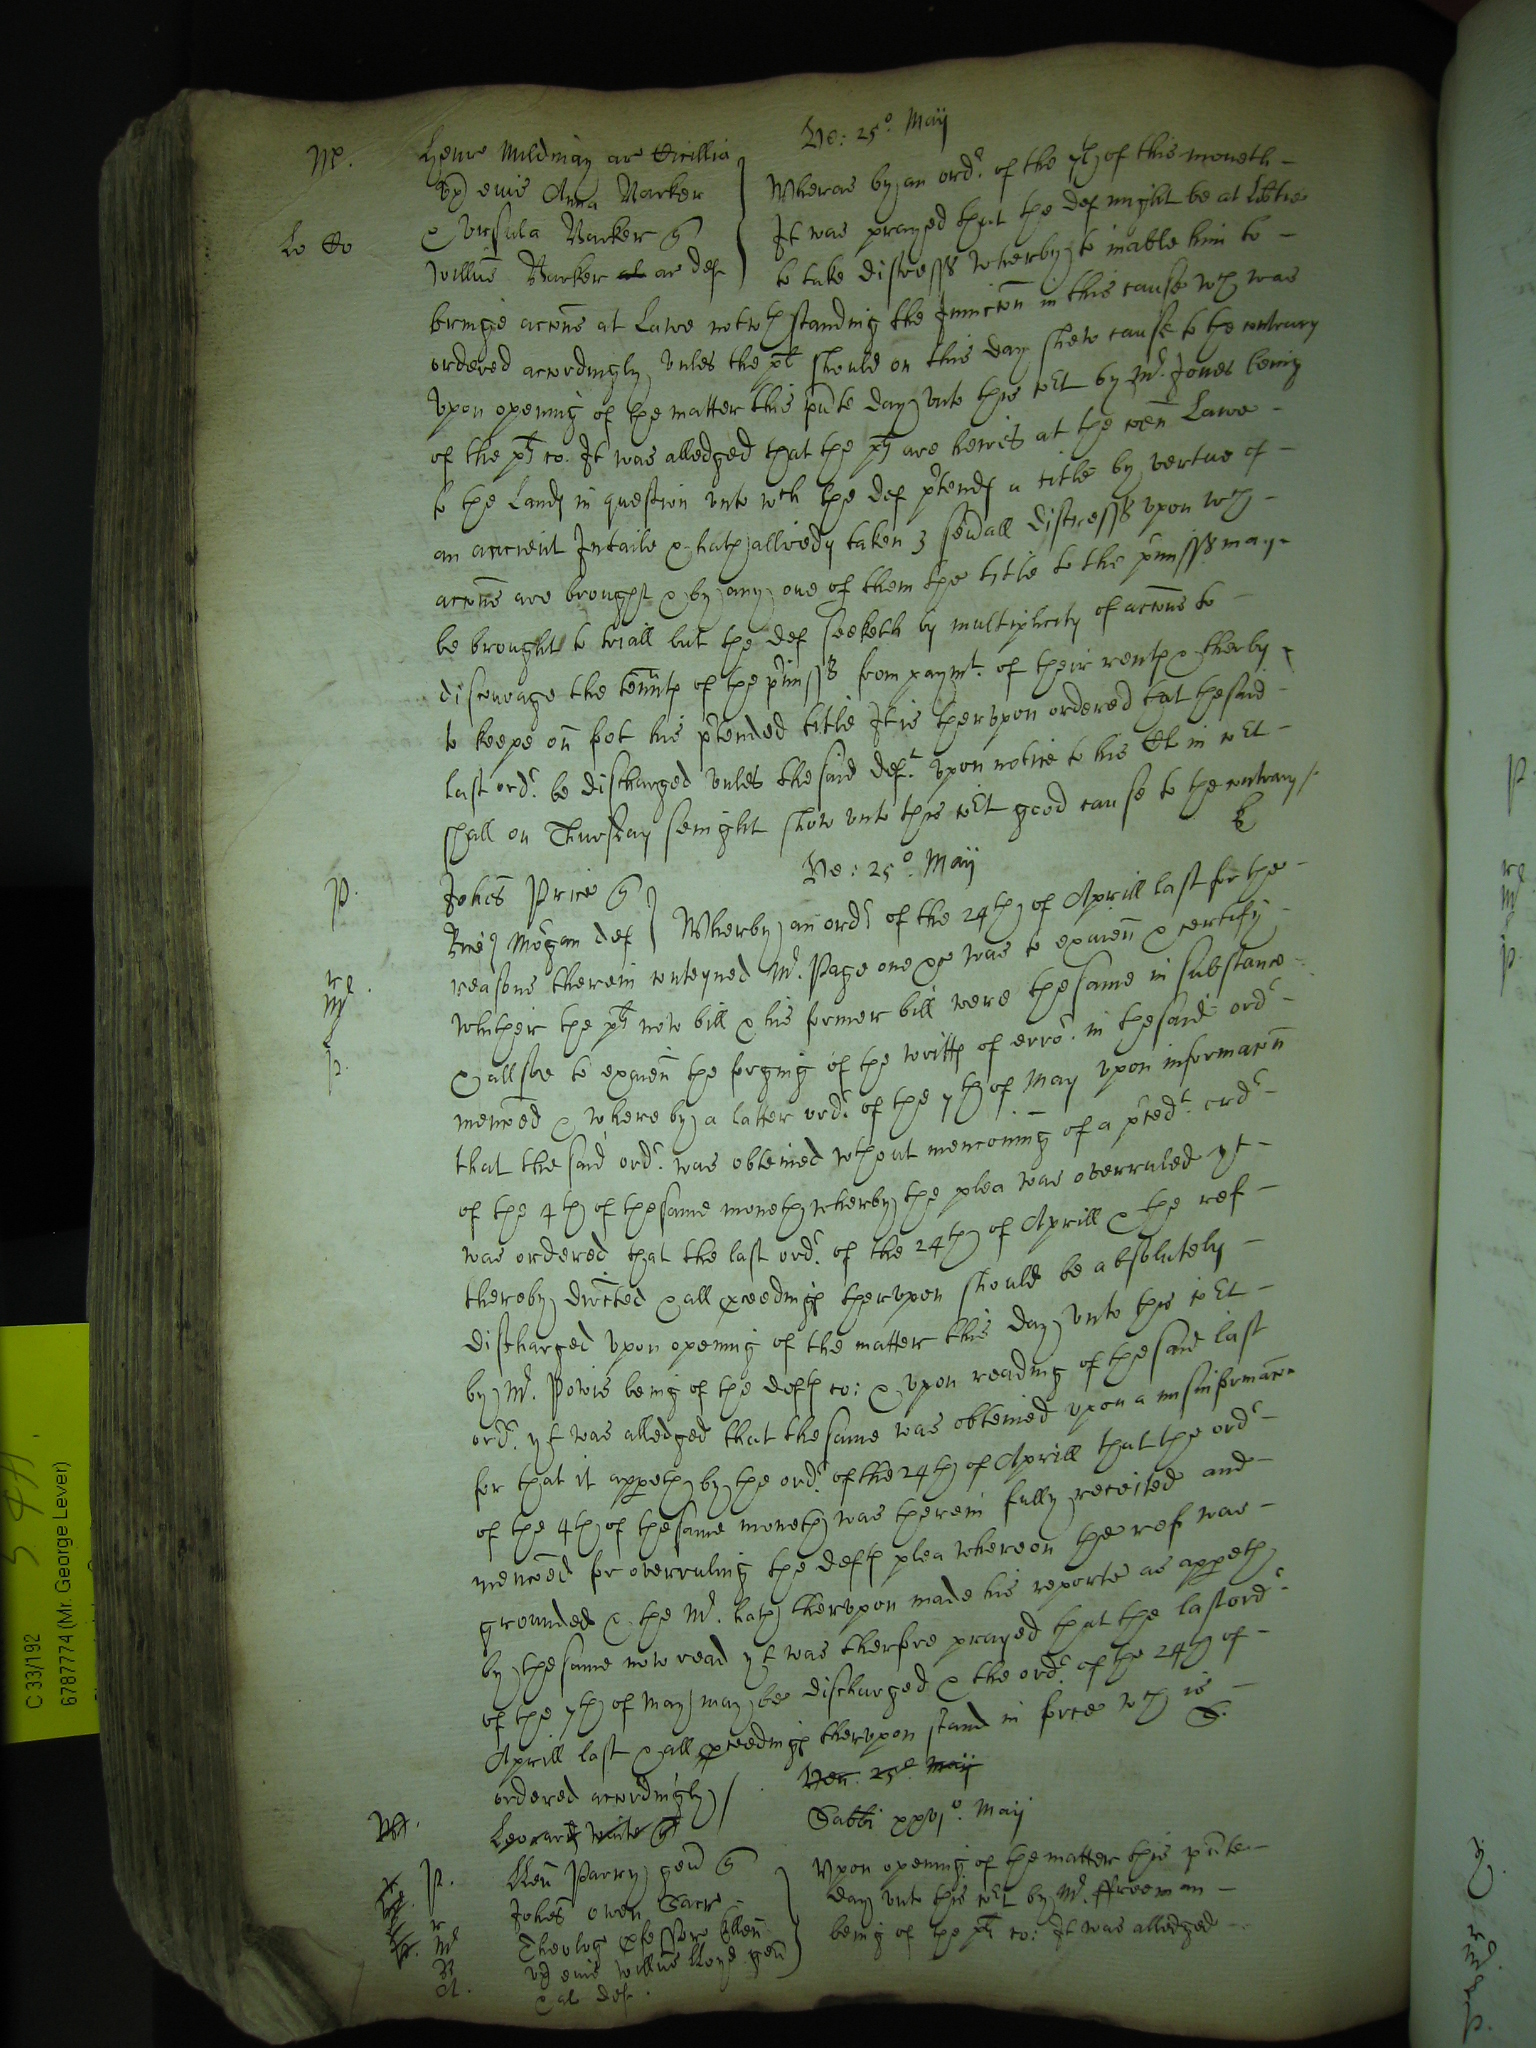 Ve: 25º. Maij
M.
Henr Mildmay ar Cicillia
vx eius Anna Barker
& Ursula Barker q
Willus Barker ar def
Wheras by an ordr. of the 7th of this moneth
It was prayed that the def might be at libtie
to take distresss wherby to inable him to
bringe accons at Lawe notwthstanding the Iniuccon in this cause wch was
ordered accordingly vnles the plt should on this day shew cause to the contrary
Vpon opening of the matter this pnte day vnto this Cort by Mr. Jones being
of the plts co. It was alledged that the plts are heires at the coen Lawe
to the Lands in question vnto wch the def ptends a title by vertue of
an ancient Intaile & hath allredy taken 3 seuall distresss vpon wch
accons are brought & by any one of them the title to the pmisss may
be brought to triall but the def seeketh by multiplicity of accons to
discourage the tennts of the pmisss from paymt. of their rents & therby
to keepe on fot his ptended title It is thervpon ordered that the said
last ordr. be discharged vnles the said deft. vpon notice to his Cl in Cort
shall on Thursday senight shew vnto this Cort good cause to the contrary
Ve: 25º. Maij
P.
Johes Price q
Mogan def
Wherby an ordr of the 24th of Aprill last for the
reasons therein conteyned Mr. Page one &c was to examin & certify
whither the plts now bill & his former bill were the same in substance
& allsoe to examin the forging of the writts of erro. in the said ordr
menced & where by a latter ordr. of the 7th of May vpon informacon
that the said ordr. was obteined wthout menconing of a pcedt. ordr
of the 4th of the same moneth wherby the plea was overruled yt
was ordered that the last ordr. of the 24th of Aprill & the ref
thereby directed & all pceedings thervpon should be absolutely
discharged vpon opening of the matter this day vnto this Cort
by Mr. Powis being of the defts co: & vpon reading of the said last
ordr. yt was alledged that the same was obteined vpon a misinformacon
for that it appeth by the ordr. of the 24th of Aprill that the ordr
of the 4th of the same moneth was therein fully recited and
menced for overruling the defts plea whereon the ref was
grounded & the Mr. hath thervpon made his reporte as appeth
by the same now read yt was therfore prayed that the last ordr
of the 7th of May may be discharged & the ordr. of the 24th of
Aprill last & all pceedings thervpon stand in force wch is
ordered accordingly
S.
Ven. 25º. Maij
Leonard White q
Sabbi xxvjº. Maij
P.
Parry gen q
Johes Owen Sacr
Theolog pfessore Ellen
vx eius Willus lloyd gen
& al def.
Vpon opening of the matter this pnte
day vnto this Cort by Mr. ffreeman
being of the plts co: It was alledged
C 33/192
6787774 (Mr. George Lever)